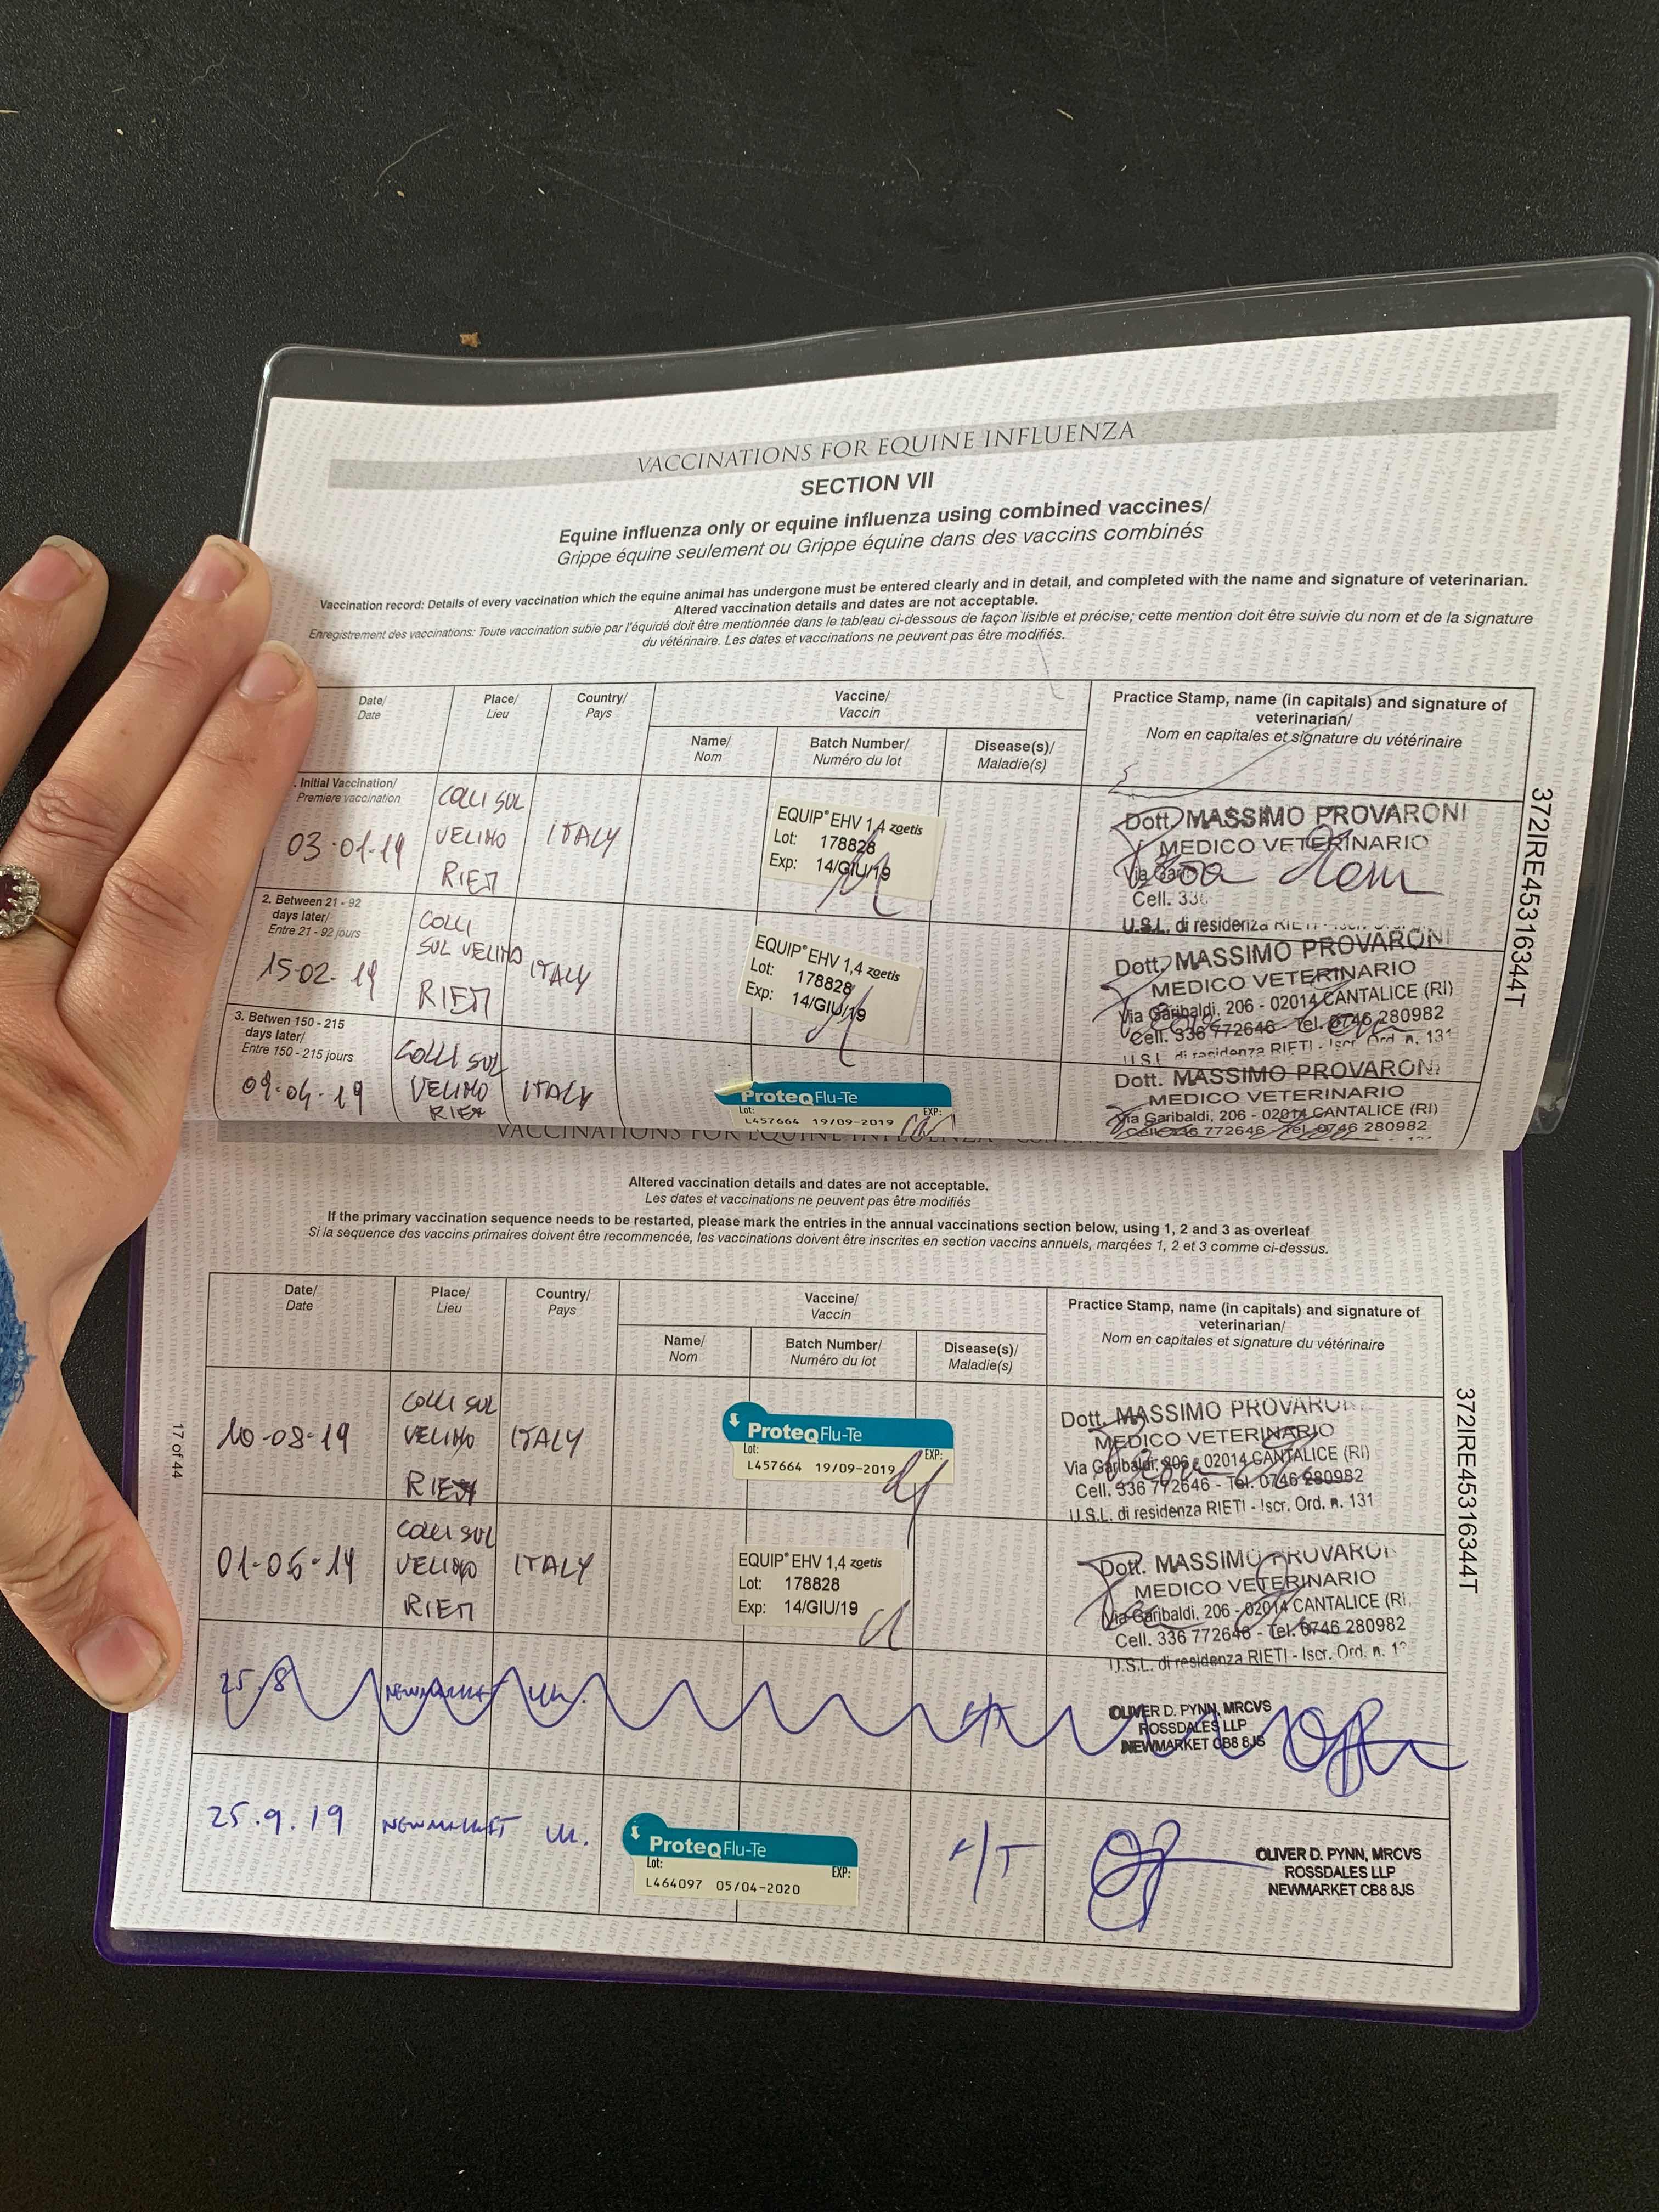 VACCINATIONS FOR EQUINE INFLUENZA
SECTION VII
Equine influenza only or equine influenza using combined vaccines/
Grippe équine seulement ou Grippe équine dans des vaccins combinés
Vaccination record: Details of every vaccination which the equine animal has undergone must be entered clearly and in detail, and completed with the name and signature of veterinarian.
Altered vaccination details and dates are not acceptable.
Enregistrement des vaccinations: Toute vaccination subie par l'équidé doit être mentionnée dans le tableau ci-dessous de façon lisible et précise; cette mention doit être suivie du nom et de la signature
du vétérinaire. Les dates et vaccinations ne peuvent pas être modifiés.
Date/
Date
Place/
Lieu
Country/
Pays
Vaccine/
Vaccin
Name/
Nom
Batch Number/
Numéro du lot
Disease(s)/
Maladie(s)
Practice Stamp, name (in capitals) and signature of
veterinarian/
Nom en capitales et signature du vétérinaire
. Initial Vaccination/
Premiere vaccination
03-01-19
COLLI SUL
VELINO
RIETI
ITALY
EQUIP® EHV 1,4 zoetis
Lot: 178828
Exp: 14/GIU/19
Dott. MASSIMO PROVARONI
MEDICO VETERINARIO
Cell. 336
U.S.L. di residenza RIETI
2. Between 21 - 92
days later/
Entre 21 - 92 jours
15-02-19
COLLI
SUL VELINO
RIETI
ITALY
EQUIP® EHV 1,4 zoetis
Lot: 178828
Exp: 14/GIU/19
Dott. MASSIMO PROVARONI
MEDICO VETERINARIO
Via Garibaldi, 206 - 02014 CANTALICE (RI)
Cell. 336 772646 - Tel. 0746 280982
U.S.L. di residenza RIETI - Iscr. Ord. n. 131
3. Betwen 150 - 215
days later/
Entre 150 - 215 jours
COLLI SUL
VELINO
RIETI
ITALY
ProteqFlu-Te
Lot: EXP:
L457664 19/09-2019
Dott. MASSIMO PROVARONI
MEDICO VETERINARIO
Via Garibaldi, 206 - 02014 CANTALICE (RI)
Cell. 336 772646 - Tel. 0746 280982
372IRE45316344T
VACCINATIONS FOR EQUINE INFLUENZA
Altered vaccination details and dates are not acceptable.
Les dates et vaccinations ne peuvent pas être modifiés
If the primary vaccination sequence needs to be restarted, please mark the entries in the annual vaccinations section below, using 1, 2 and 3 as overleaf
Si la sequence des vaccins primaires doivent être recommencée, les vaccinations doivent être inscrites en section vaccins annuels, marqées 1, 2 et 3 comme ci-dessus.
Date/
Date
Place/
Lieu
Country/
Pays
Vaccine/
Vaccin
Name/
Nom
Batch Number/
Numéro du lot
Disease(s)/
Maladie(s)
Practice Stamp, name (in capitals) and signature of
veterinarian/
Nom en capitales et signature du vétérinaire
10-08-19
COLLI SUL
VELINO
RIETI
ITALY
ProteqFlu-Te
Lot: EXP:
L457664 19/09-2019
Dott. MASSIMO PROVARONI
MEDICO VETERINARIO
Via Garibaldi, 206 - 02014 CANTALICE (RI)
Cell. 336 772646 - Tel. 0746 280982
U.S.L. di residenza RIETI - Iscr. Ord. n. 131
COLLI SUL
VELINO
RIETI
ITALY
EQUIP® EHV 1,4 zoetis
Lot: 178828
Exp: 14/GIU/19
Dott. MASSIMO PROVARONI
MEDICO VETERINARIO
Via Garibaldi, 206 - 02014 CANTALICE (RI,
Cell. 336 772646 - Tel. 0746 280982
U.S.L. di residenza RIETI - Iscr. Ord. n. 13
25.8
NEWMARKET
UK.
F/T
OLIVER D. PYNN, MRCVS
ROSSDALES LLP
NEWMARKET CB8 8JS
25.9.19
NEWMARKET
UK.
ProteqFlu-Te
Lot: EXP:
L464097 05/04-2020
F/T
OLIVER D. PYNN, MRCVS
ROSSDALES LLP
NEWMARKET CB8 8JS
17 of 44
372IRE45316344T